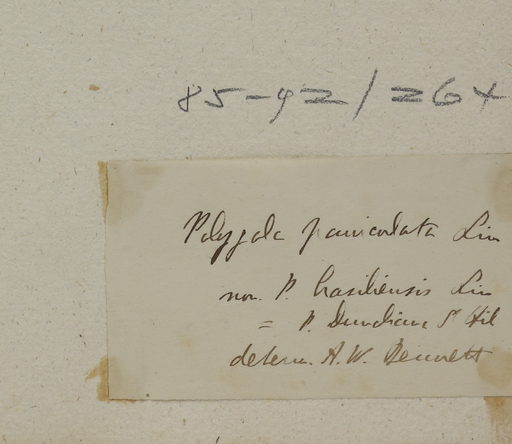 85-92/264
Polygala paniculata Lin
non. P. brasiliensis Lin
= P. Dunduane St Hil
determ. A. W. Bennett